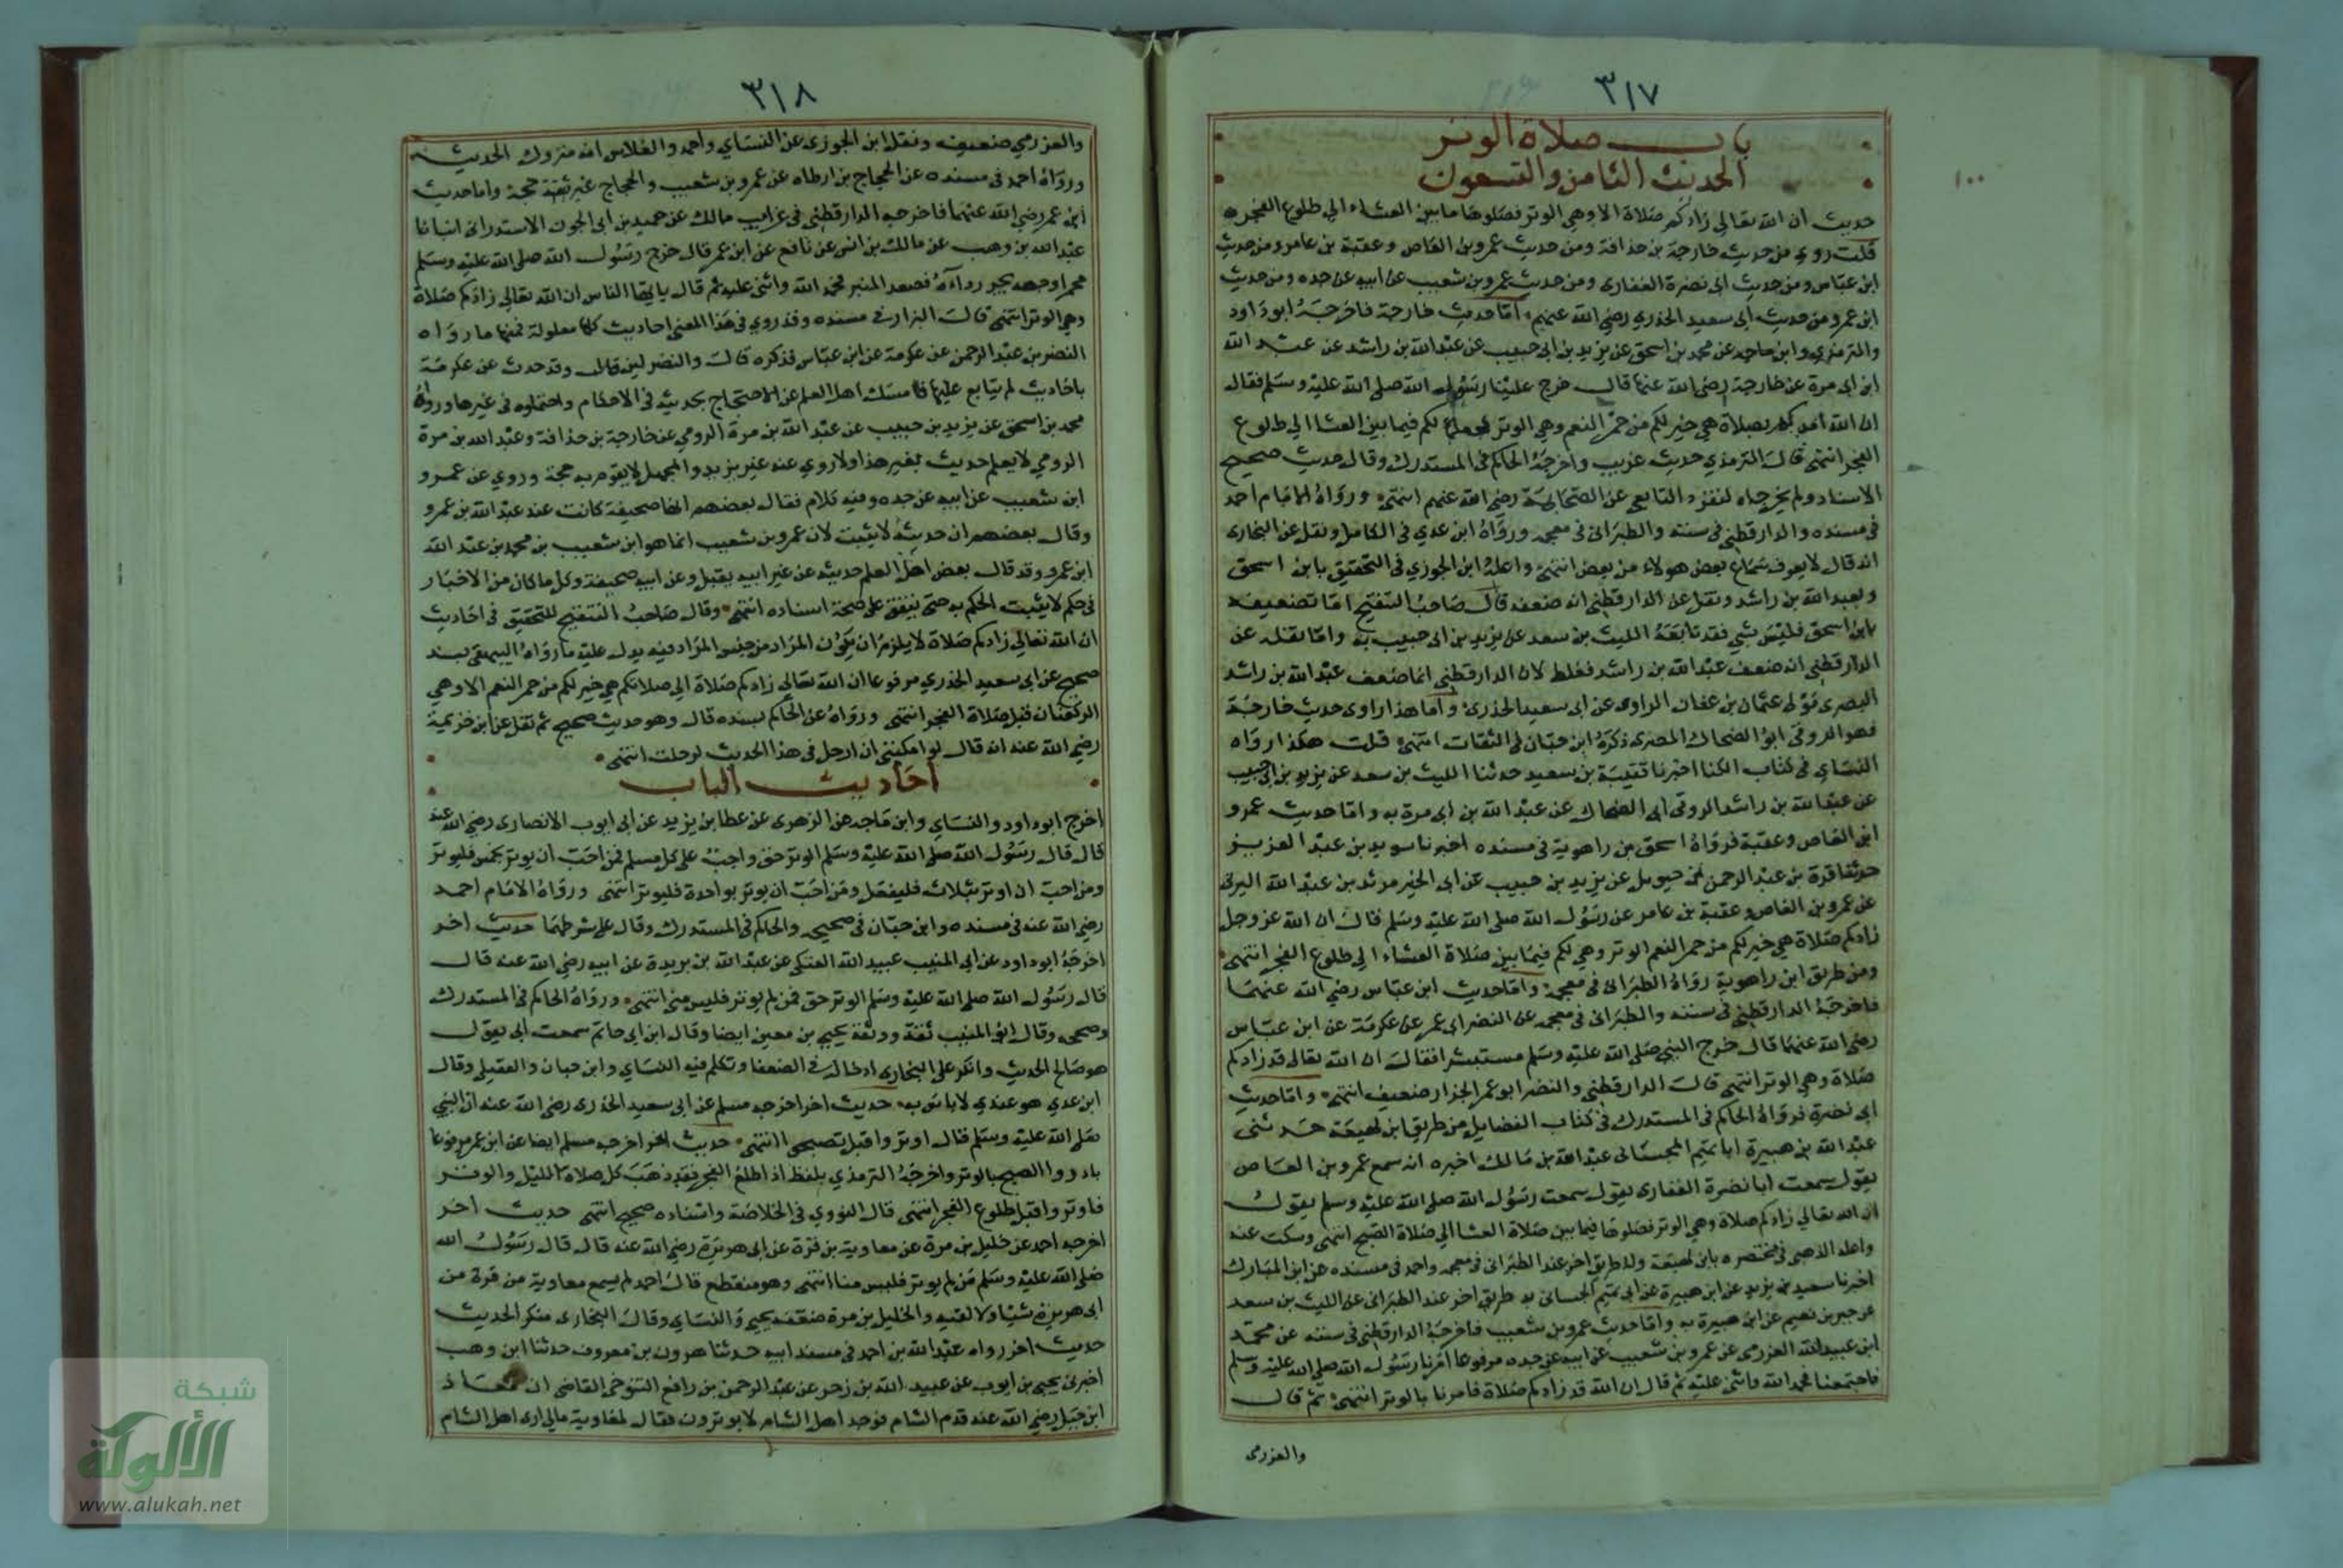 ٣١٧
باب صلاة الوتر
الحديث الثامن والتسعون
١٠٠
حديث ان الله تعالى زادكم صلاة الا وهي الوتر فصلوها ما بين العشاء الى طلوع الفجر
قلت روي من حديث خارجة بن حذافة ومن حديث عمرو بن العاص وعقبة بن عامر ومن حديث
ابن عباس ومن حديث ابى نضرة الغفارى ومن حديث عمرو بن شعيب عن ابيه عن جده ومن حديث
ابن عمر ومن حديث ابى سعيد الخدري رضي الله عنهم اما حديث خارجة فاخرجه ابو داود
والترمذي وابن ماجه عن محمد بن اسحق عن يزيد بن ابى حبيب عن عبد الله بن راشد عن عبد الله
ابن ابى مرة عن خارجة رضي الله عنه قال خرج علينا رسول الله صلى الله عليه وسلم فقال
ان الله امدكم بصلاة هي خير لكم من حمر النعم وهي الوتر لكم فيما بين العشا الى طلوع
الفجر انتهى قال الترمذي حديث غريب واخرجه الحاكم فى المستدرك وقال حديث صحيح
الاسناد ولم يخرجاه لتفرد التابعى عن الصحابي رضي الله عنهم انتهى ورواه الامام احمد
فى مسنده والدارقطنى فى سننه والطبرانى فى معجمه ورواه ابن عدي فى الكامل ونقل عن البخارى
انه قال لا يعرف سماع بعض هولاء من بعض انتهى واعله ابن الجوزي فى التحقيق بابن اسحق
وبعبد الله بن راشد ونقل عن الدارقطنى انه ضعفه قال صاحب التنقيح اما تضعيفه
بابن اسحق فليس بشي فقد تابعه الليث بن سعد عن يزيد بن ابى حبيب به واما نقله عن
الدارقطنى انه ضعف عبد الله بن راشد فغلط لان الدارقطنى انما ضعف عبد الله بن راشد
البصرى مولى عثمان بن عفان الراوى عن ابى سعيد الخدرى واما هذا راوى حديث خارجة
فهو الزوقى ابو الضحاك المصرى ذكره ابن حبان فى الثقات انتهى قلت هكذا رواه
النساى فى كتاب الكنا اخبرنا قتيبة بن سعيد حدثنا الليث بن سعد عن يزيد بن ابى حبيب
عن عبد الله بن راشد الزوقى ابى الضحاك عن عبد الله بن ابى مرة به واما حديث عمرو
ابن العاص وعقبة فرواه اسحق بن راهوية فى مسنده اخبرنا سويد بن عبد العزيز
حدثنا قرة بن عبد الرحمن بن حيويل عن يزيد بن حبيب عن ابى الخير مرثد بن عبد الله اليزنى
عن عمرو بن العاص وعقبة بن عامر عن رسول الله صلى الله عليه وسلم قال ان الله عز وجل
زادكم صلاة هي خير لكم من حمر النعم الوتر وهى لكم فيما بين صلاة العشاء الى طلوع الفجر انتهى
ومن طريق ابن راهوية رواه الطبرانى فى معجمه واما حديث ابن عباس رضي الله عنهما
فاخرجه الدارقطنى فى سننه والطبرانى فى معجمه عن النضر ابى عمر عن عكرمة عن ابن عباس
رضى الله عنهما قال خرج النبي صلى الله عليه وسلم مستبشرا فقال ان الله تعالى قد زادكم
صلاة وهي الوتر انتهى قال الدارقطنى والنضر ابو عمر الخزاز ضعيف انتهى واما حديث
ابى نضرة فرواه الحاكم فى المستدرك فى كتاب الفضايل من طريق ابن لهيعة حدثنى
عبد الله بن هبيرة ان ابا تميم الجيشانى عبد الله بن مالك اخبره انه سمع عمرو بن العاص
يقول سمعت ابا نضرة الغفارى يقول سمعت رسول الله صلى الله عليه وسلم يقول
ان الله تعالى زادكم صلاة وهي الوتر فصلوها فيما بين صلاة العشا الى صلاة الصبح انتهى وسكت عنه
واعله الذهبى فى مختصره بابن لهيعة وله طريق اخر عند الطبرانى فى معجمه واحمد فى مسنده عن ابن المبارك
اخبرنا سعيد بن يزيد عن ابن هبيرة عن ابى تميم الجيشانى به طريق اخر عند الطبرانى عن الليث بن سعد
عن جبر بن نعيم عن ابن هبيرة به واما حديث عمرو بن شعيب فاخرجه الدارقطنى فى سننه عن محمد
ابن عبيد الله العزرمى عن عمرو بن شعيب عن ابيه عن جده مرفوعا امرنا رسول الله صلى الله عليه وسلم
فاجتمعنا فحمد الله واثنى عليه ثم قال ان الله قد زادكم صلاة فامرنا بالوتر انتهى ثم قال
والعزرمى
٣١٨
والعزرمي ضعيف ونقل ابن الجوزى عن النساي واحمد والفلاس انه متروك الحديث
ورواه احمد فى مسنده عن الحجاج بن ارطاه عن عمرو بن شعيب والحجاج غير ثقة حجة واما حديث
ابن عمر رضي الله عنهما فاخرجه الدارقطنى فى غرايب مالك عن حميد بن ابى الجون الاسكندرانى انبانا
عبد الله بن وهب عن مالك بن انس عن نافع عن ابن عمر قال خرج رسول الله صلى الله عليه وسلم
محمرا وجهه يجر رداءه فصعد المنبر فحمد الله واثنى عليه ثم قال يا ايها الناس ان الله تعالى زادكم صلاة
وهي الوتر انتهى قال البزار فى مسنده وقد روي فى هذا المعنى احاديث كلها معلولة فمنها ما رواه
النضر بن عبد الرحمن عن عكرمة عن ابن عباس فذكره قال والنضر لين قال وقد حدث عن عكرمة
باحاديث لم يتابع عليها فامسك اهل العلم عن الاحتجاج بحديثه فى الاحكام واحتملوه فى غيرها ورواه
محمد بن اسحق عن يزيد بن حبيب عن عبد الله بن مرة الزومي عن خارجة بن حذافة وعبد الله بن مرة
الزومي لا يعلم حديث بغير هذا ولا روي عنه غير يزيد والمجهل لا يقوم به حجة وروي عن عمرو
ابن شعيب عن ابيه عن جده وفيه كلام فقال بعضهم انها صحيفة كانت عند عبد الله بن عمرو
وقال بعضهم ان حديثه لا يثبت لان عمرو بن شعيب انما هو ابن شعيب بن محمد بن عبد الله
ابن عمرو وقد قال بعض اهل العلم حديثه عن غير ابيه يقبل وعن ابيه صحيفة وكل ما كان من الاخبار
فى حكم لا يثبت الحكم به حتى يتفق على صحة اسناده انتهى وقال صاحب التنقيح للتحقيق فى احاديث
ان الله تعالى زادكم صلاة لا يلزم ان يكون المزاد من جنس المزاد فيه يدل عليه ما رواه البيهقى بسند
صحيح عن ابى سعيد الخدري مرفوعا ان الله تعالى زادكم صلاة الى صلاتكم هي خير لكم من حمر النعم الا وهي
الركعتان قبل صلاة الفجر انتهى ورواه عن الحاكم بسنده قال وهو حديث صحيح ثم نقل عن ابن خزيمة
رضي الله عنه انه قال لو امكنني ان ارحل فى هذا الحديث لرحلت انتهى
احاديث الباب
اخرج ابو داود والنساي وابن ماجه عن الزهرى عن عطا بن يزيد عن ابى ايوب الانصارى رضي الله عنه
قال قال رسول الله صلى الله عليه وسلم الوتر حق واجب على كل مسلم فمن احب ان يوتر بخمس فليوتر
ومن احب ان اوتر بثلاث فليفعل ومن احب ان يوتر بواحدة فليوتر انتهى ورواه الامام احمد
رضي الله عنه فى مسنده وابن حبان فى صحيحه والحاكم فى المستدرك وقال على شرطهما حديث اخر
اخرجه ابو داود عن ابى المنيب عبيد الله العتكى عن عبد الله بن بريدة عن ابيه رضي الله عنه قال
قال رسول الله صلى الله عليه وسلم الوتر حق فمن لم يوتر فليس منى انتهى ورواه الحاكم فى المستدرك
وصححه وقال ابو المنيب ثقة ووثقه يحيى بن معين ايضا وقال ابن ابى حاتم سمعت ابى يقول
هو صالح الحديث وانكر على البخارى ادخاله فى الضعفا وتكلم فيه النساي وابن حبان والعقيلى وقال
ابن عدي هو عندي لا باس به حديث اخر اخرجه مسلم عن ابى سعيد الخدرى رضى الله عنه ان النبي
صلى الله عليه وسلم قال اوتروا قبل تصبحوا انتهى حديث اخر اخرجه مسلم ايضا عن ابن عمر مرفوعا
بادروا الصبح بالوتر واخرجه الترمذي بلفظ اذا طلع الفجر فقد ذهب كل صلاة الليل والوتر
فاوتروا قبل طلوع الفجر انتهى قال النووي فى الخلاصة واسناده صحيح انتهى حديث اخر
اخرجه احمد عن خليل بن مرة عن معاوية بن قرة عن ابى هريرة رضي الله عنه قال قال رسول الله
صلى الله عليه وسلم من لم يوتر فليس منا انتهى وهو منقطع قال احمد لم يسمع معاوية من قرة من
ابى هريرة شيا ولا لقيه والخليل بن مرة ضعفه يحيى والنساي وقال البخارى منكر الحديث
حديث اخر رواه عبد الله بن احمد فى مسند ابيه حدثنا هرون بن معروف حدثنا ابن وهب
اخبرنى يحيى بن ايوب عن عبيد الله بن زحر عن عبد الرحمن بن رافع التنوخى القاضى ان معاذ
ابن جبل رضي الله عنه قدم الشام فوجد اهل الشام لا يوترون فقال لمعاوية مالى ارى اهل الشام
شبكة
الألوكة
www.alukah.net